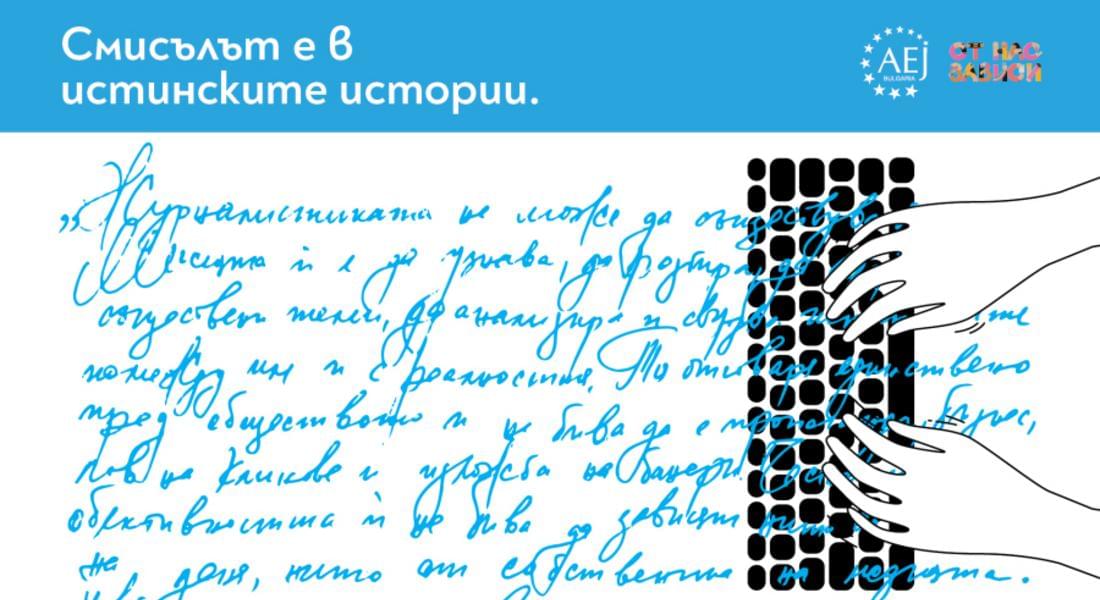 Смисълът е в
истинските истории.
AEJ
BULGARIA
ОТ НАС
ЗАВИСИ
„Журналистиката не може да съществува
Мисията ѝ е да узнава, да
обществени и свързва
помежду им и с реалността. Тя отговаря единствено
пред обществото и не бива да е бизнес,
лов на кликове и изложба на банери.
обективността ѝ не бива да зависят нито
на деня, нито от собственика на медията.